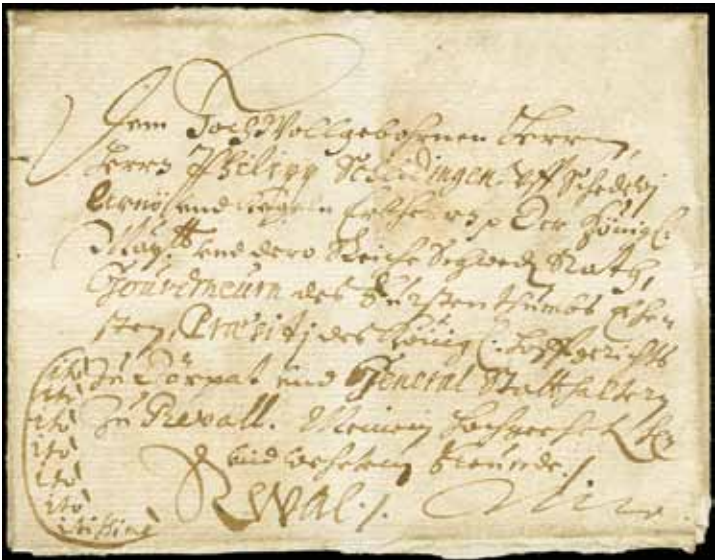 Dem HochWollgebohrnen Herren,
Herrn Philipp Scheidingen, vff Schedewj
Arnö, und Erbher, Der Königl:
Maytt: und dero Reiche Schweden Rath,
Gouverneurn des Fürstenthumbs Ehe
sten, Præsidj des Königl: Hoffgerichts
zu Dörpat und General Statthaltern
zu Revall. Meinem
und Freunde./
Rewal./.
ito
ito
ito
ito
ito
ito
itissime